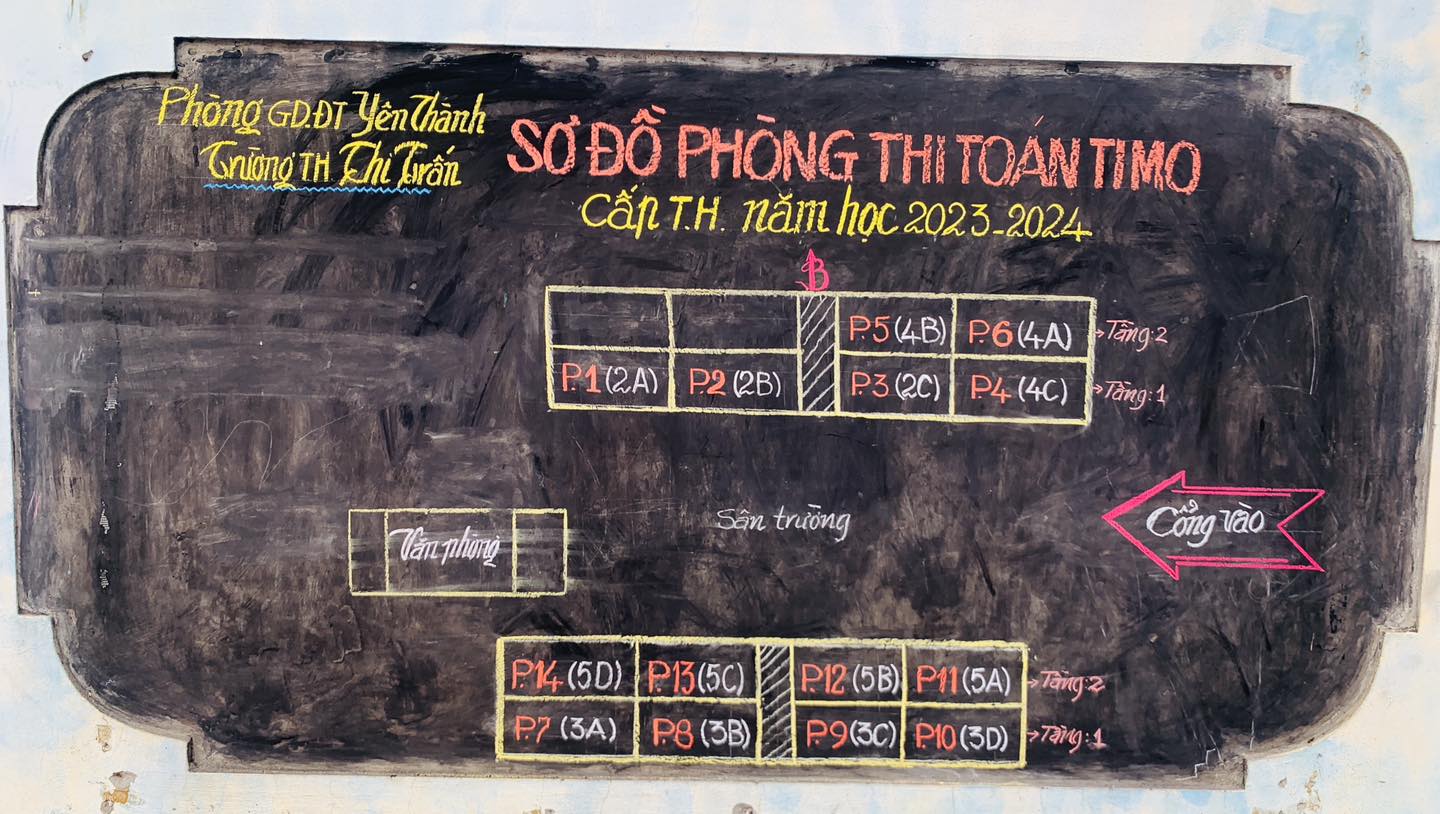 Phòng GD.ĐT Yên Thành
Trường TH Thị Trấn
SƠ ĐỒ PHÒNG THI TOÁN TIMO
Cấp T.H. năm học 2023-2024
B
P.5 (4B) P.6 (4A) Tầng:2
P.1 (2A) P.2 (2B) P.3 (2C) P.4 (4C) Tầng:1
Sân trường
Cổng vào
Văn phòng
P.14 (5D) P.13 (5C) P.12 (5B) P.11 (5A) Tầng:2
P.7 (3A) P.8 (3B) P.9 (3C) P.10 (3D) Tầng:1